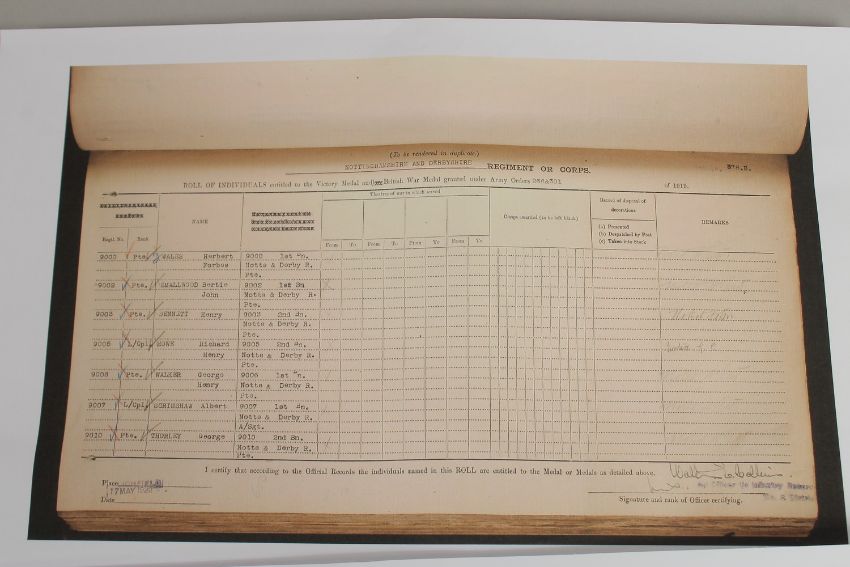 (To be rendered in duplicate.)
NOTTINGHAMSHIRE AND DERBYSHIRE REGIMENT OR CORPS.
ROLL OF INDIVIDUALS entitled to the Victory Medal and British War Medal granted under Army Orders of 1919.
Theatres of war in which served
Record of disposal of decorations
(a) Presented
(b) Despatched by Post
(c) Taken into Stock
Regtl. No. Rank NAME Clasps awarded (to be left blank) REMARKS
From To From To From To From To
9000 Pte. WALES Herbert 9000 1st Bn.
Forbes Notts & Derby R.
Pte.
9002 Pte. SMALLWOOD Bertie 9002 1st Bn
John Notts & Derby R.
Pte.
9003 Pte. BENNETT Henry 9003 2nd Bn.
Notts & Derby R.
Pte.
9005 L/Cpl Richard 9005 2nd Bn.
Henry Notts & Derby R.
Pte.
9006 Pte. WALKER George 9006 1st Bn.
Henry Notts & Derby R.
Pte.
9007 L/Cpl SCRIMSHAW Albert 9007 1st Bn.
Notts & Derby R.
A/Sgt.
9010 Pte. THORLEY George 9010 2nd Bn.
Notts & Derby R.
Pte.
I certify that according to the Official Records the individuals named in this ROLL are entitled to the Medal or Medals as detailed above.
Place
17 MAY
Date
Signature and rank of Officer certifying.